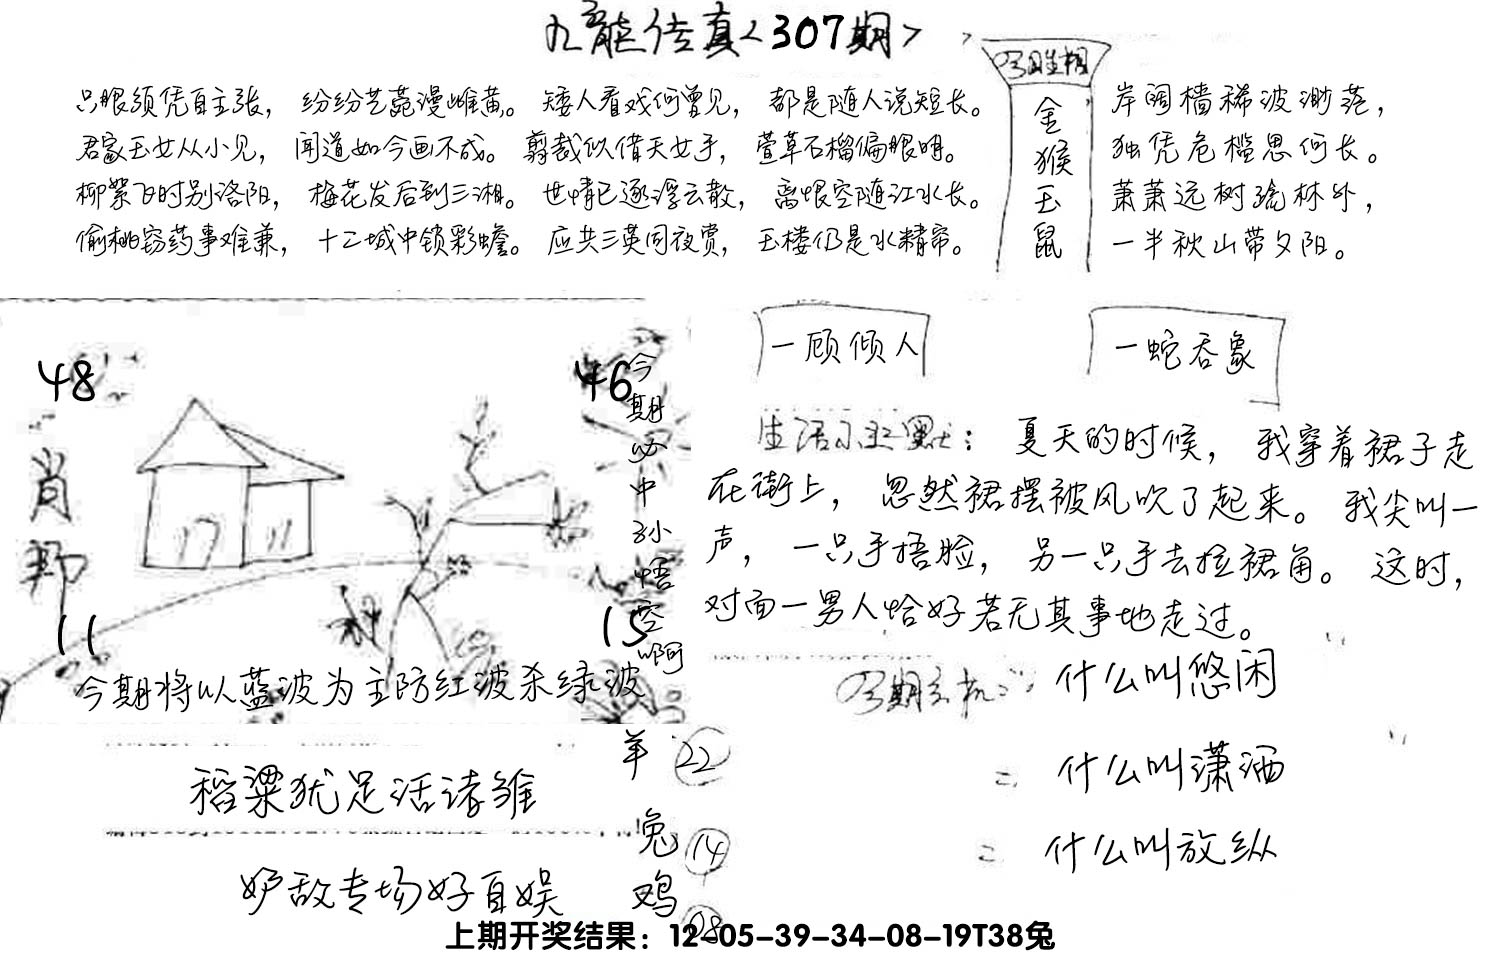 九龙传真<307期>
只眼须凭自主张，纷纷艺苑漫雌黄。矮人看戏何曾见，都是随人说短长。
君家玉女从小见，闻道如今画不成。剪裁似借天女手，萱草石榴偏眼明。
柳絮飞时别洛阳，梅花发后到三湘。世情已逐浮云散，离恨空随江水长。
偷桃窃药事难兼，十二城中锁彩蟾。应共三英同夜赏，玉楼仍是水精帘。
今期生相
金猴玉鼠
岸阔樯稀波渺茫，
独凭危槛思何长。
萧萧远树疏林外，
一半秋山带夕阳。
48
46
肖
11
15
今期必中孙悟空啊
今期将以蓝波为主防红波杀绿波
一顾倾人
一蛇吞象
生活小幽默：夏天的时候，我穿着裙子走
在街上，忽然裙摆被风吹了起来。我尖叫一
声，一只手捂脸，另一只手去拉裙角。这时，
对面一男人恰好若无其事地走过。
今期玄机：什么叫悠闲
什么叫潇洒
什么叫放纵
稻粱犹足活诸雏
妒敌专场好自娱
羊 22
兔 14
鸡 08
上期开奖结果：12-05-39-34-08-19T38兔